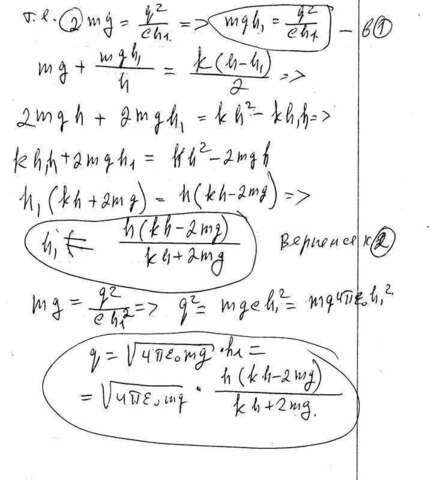 т.е. ② mg = q²/(ch₁) => mgh₁ = q²/(ch₁) — в①
mg + mgh₁/h = k(h-h₁)/2 =>
2mgh + 2mgh₁ = kh² - kh₁h =>
kh₁h + 2mgh₁ = kh² - 2mgh
h₁(kh + 2mg) = h(kh - 2mg) =>
h₁ = h(kh - 2mg)/(kh + 2mg) Вернемся к ②
mg = q²/(ch₁²) => q² = mgch₁² = mg4πε₀h₁²
q = √(4πε₀mg) · h₁ =
= √(4πε₀mg) · h(kh - 2mg)/(kh + 2mg).